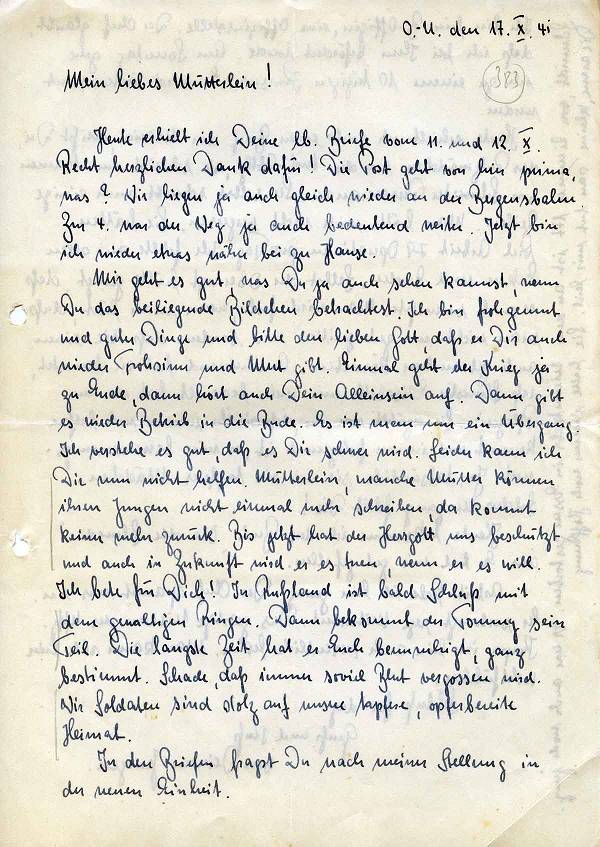 O.-U. den 17. X. 41
383
Mein liebes Mütterlein!
Heute erhielt ich Deine lb. Briefe vom 11. und 12. X.
Recht herzlichen Dank dafür! Die Post geht von hier prima,
was? Wir liegen ja auch gleich wieder an der
Zur 4. war der Weg ja auch bedeutend weiter. Jetzt bin
ich wieder etwas näher bei zu Hause.
Mir geht es gut, was Du ja auch sehen kannst, wenn
Du das beiliegende Bildchen betrachtest. Ich bin frohgemut
und guter Dinge und bitte den lieben Gott, daß er Dir auch
wieder Frohsinn und Mut gibt. Einmal geht der Krieg ja
zu Ende, dann hört auch Dein Alleinsein auf. Dann gibt
es wieder Betrieb in die Bude. Es ist nun ein Übergang.
Ich verstehe es gut, daß es Dir schwer wird. Leider kann ich
Dir nun nicht helfen. Mütterlein, manche Mütter können
ihren Jungen nicht einmal mehr schreiben, da kommt
keiner mehr zurück. Bis jetzt hat der Herrgott uns beschützt
und auch in Zukunft wird er es tuen, wenn er es will.
Ich bete für Dich! In Rußland ist bald Schluß mit
dem gewaltigen Ringen. Dann bekommt der Tommy sein
Teil. Die längste Zeit hat er Euch beunruhigt, ganz
bestimmt. Schade, daß immer soviel Blut vergossen wird.
Wir Soldaten sind stolz auf unsere tapfere, opferbereite
Heimat.
In den Briefen fragst Du nach meiner Stellung in
der neuen Einheit.